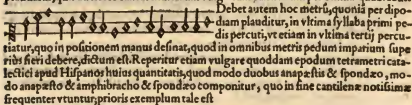 Debet autem hoc metrũ, quoniã per dipo-
diam plauditur, in vltima syllaba primi pe-
dis percuti, vt etiam in vltima tertij percu-
tiatur, quo in positionem manus desinat, quod in omnibus metris pedum imparium supe
rius fieri debere, dictum est. Reperitur etiam vulgare quoddam epodum tetrametri cata-
lectici apud Hispanos huius quantitatis, quod modo duobus anapæstis & spondæo, mo-
do anapæsto & amphibracho & spondæo componitur, quo in fine cantilenæ notissimæ
frequenter vtuntur; prioris exemplum tale est